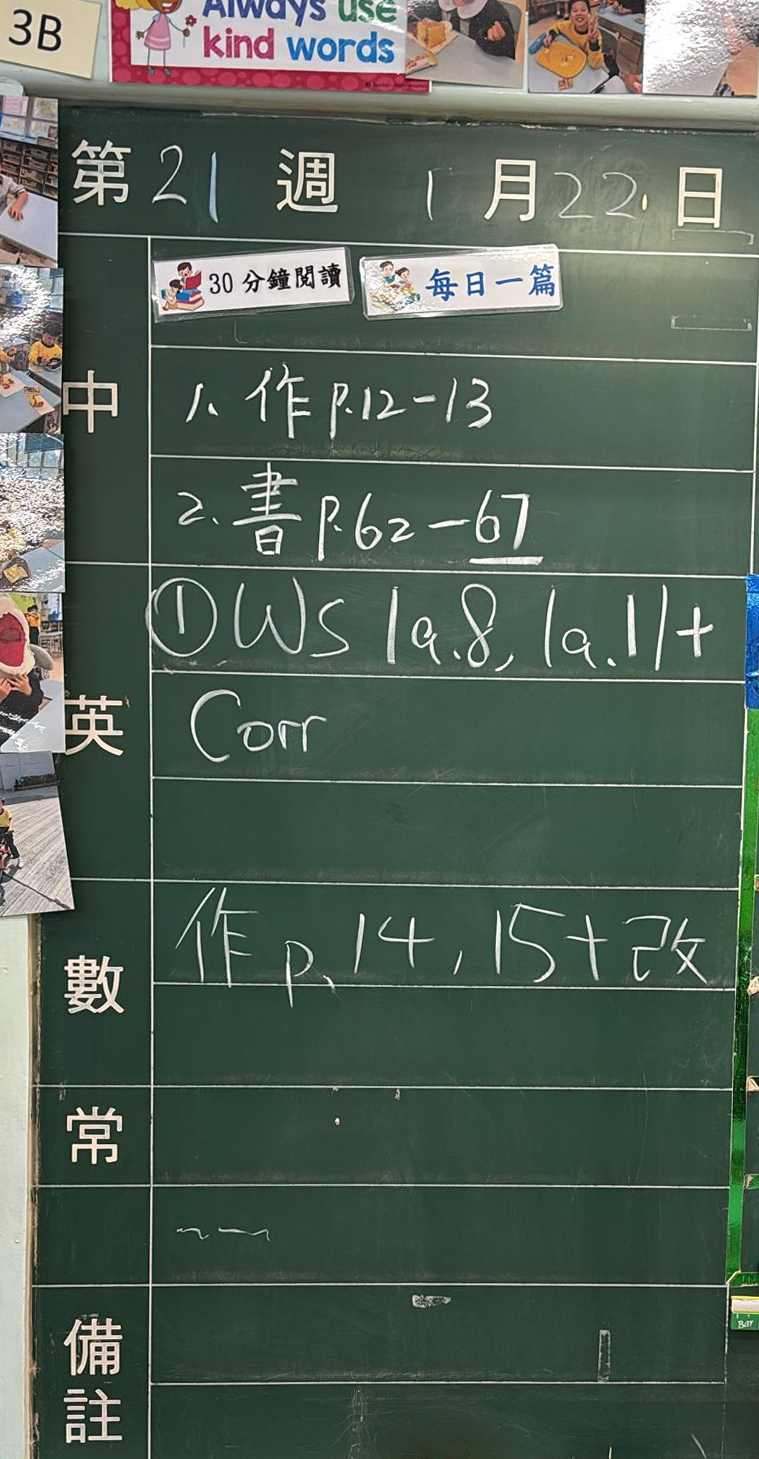 3B
Always use
kind words
第21週 1月22日
30分鐘閱讀 每日一篇
中
1. 作 P.12-13
2. 書 P.62-67
英
① WS 1a.8, 1a.11+
Corr
數
作 p.14, 15+改
常
備註